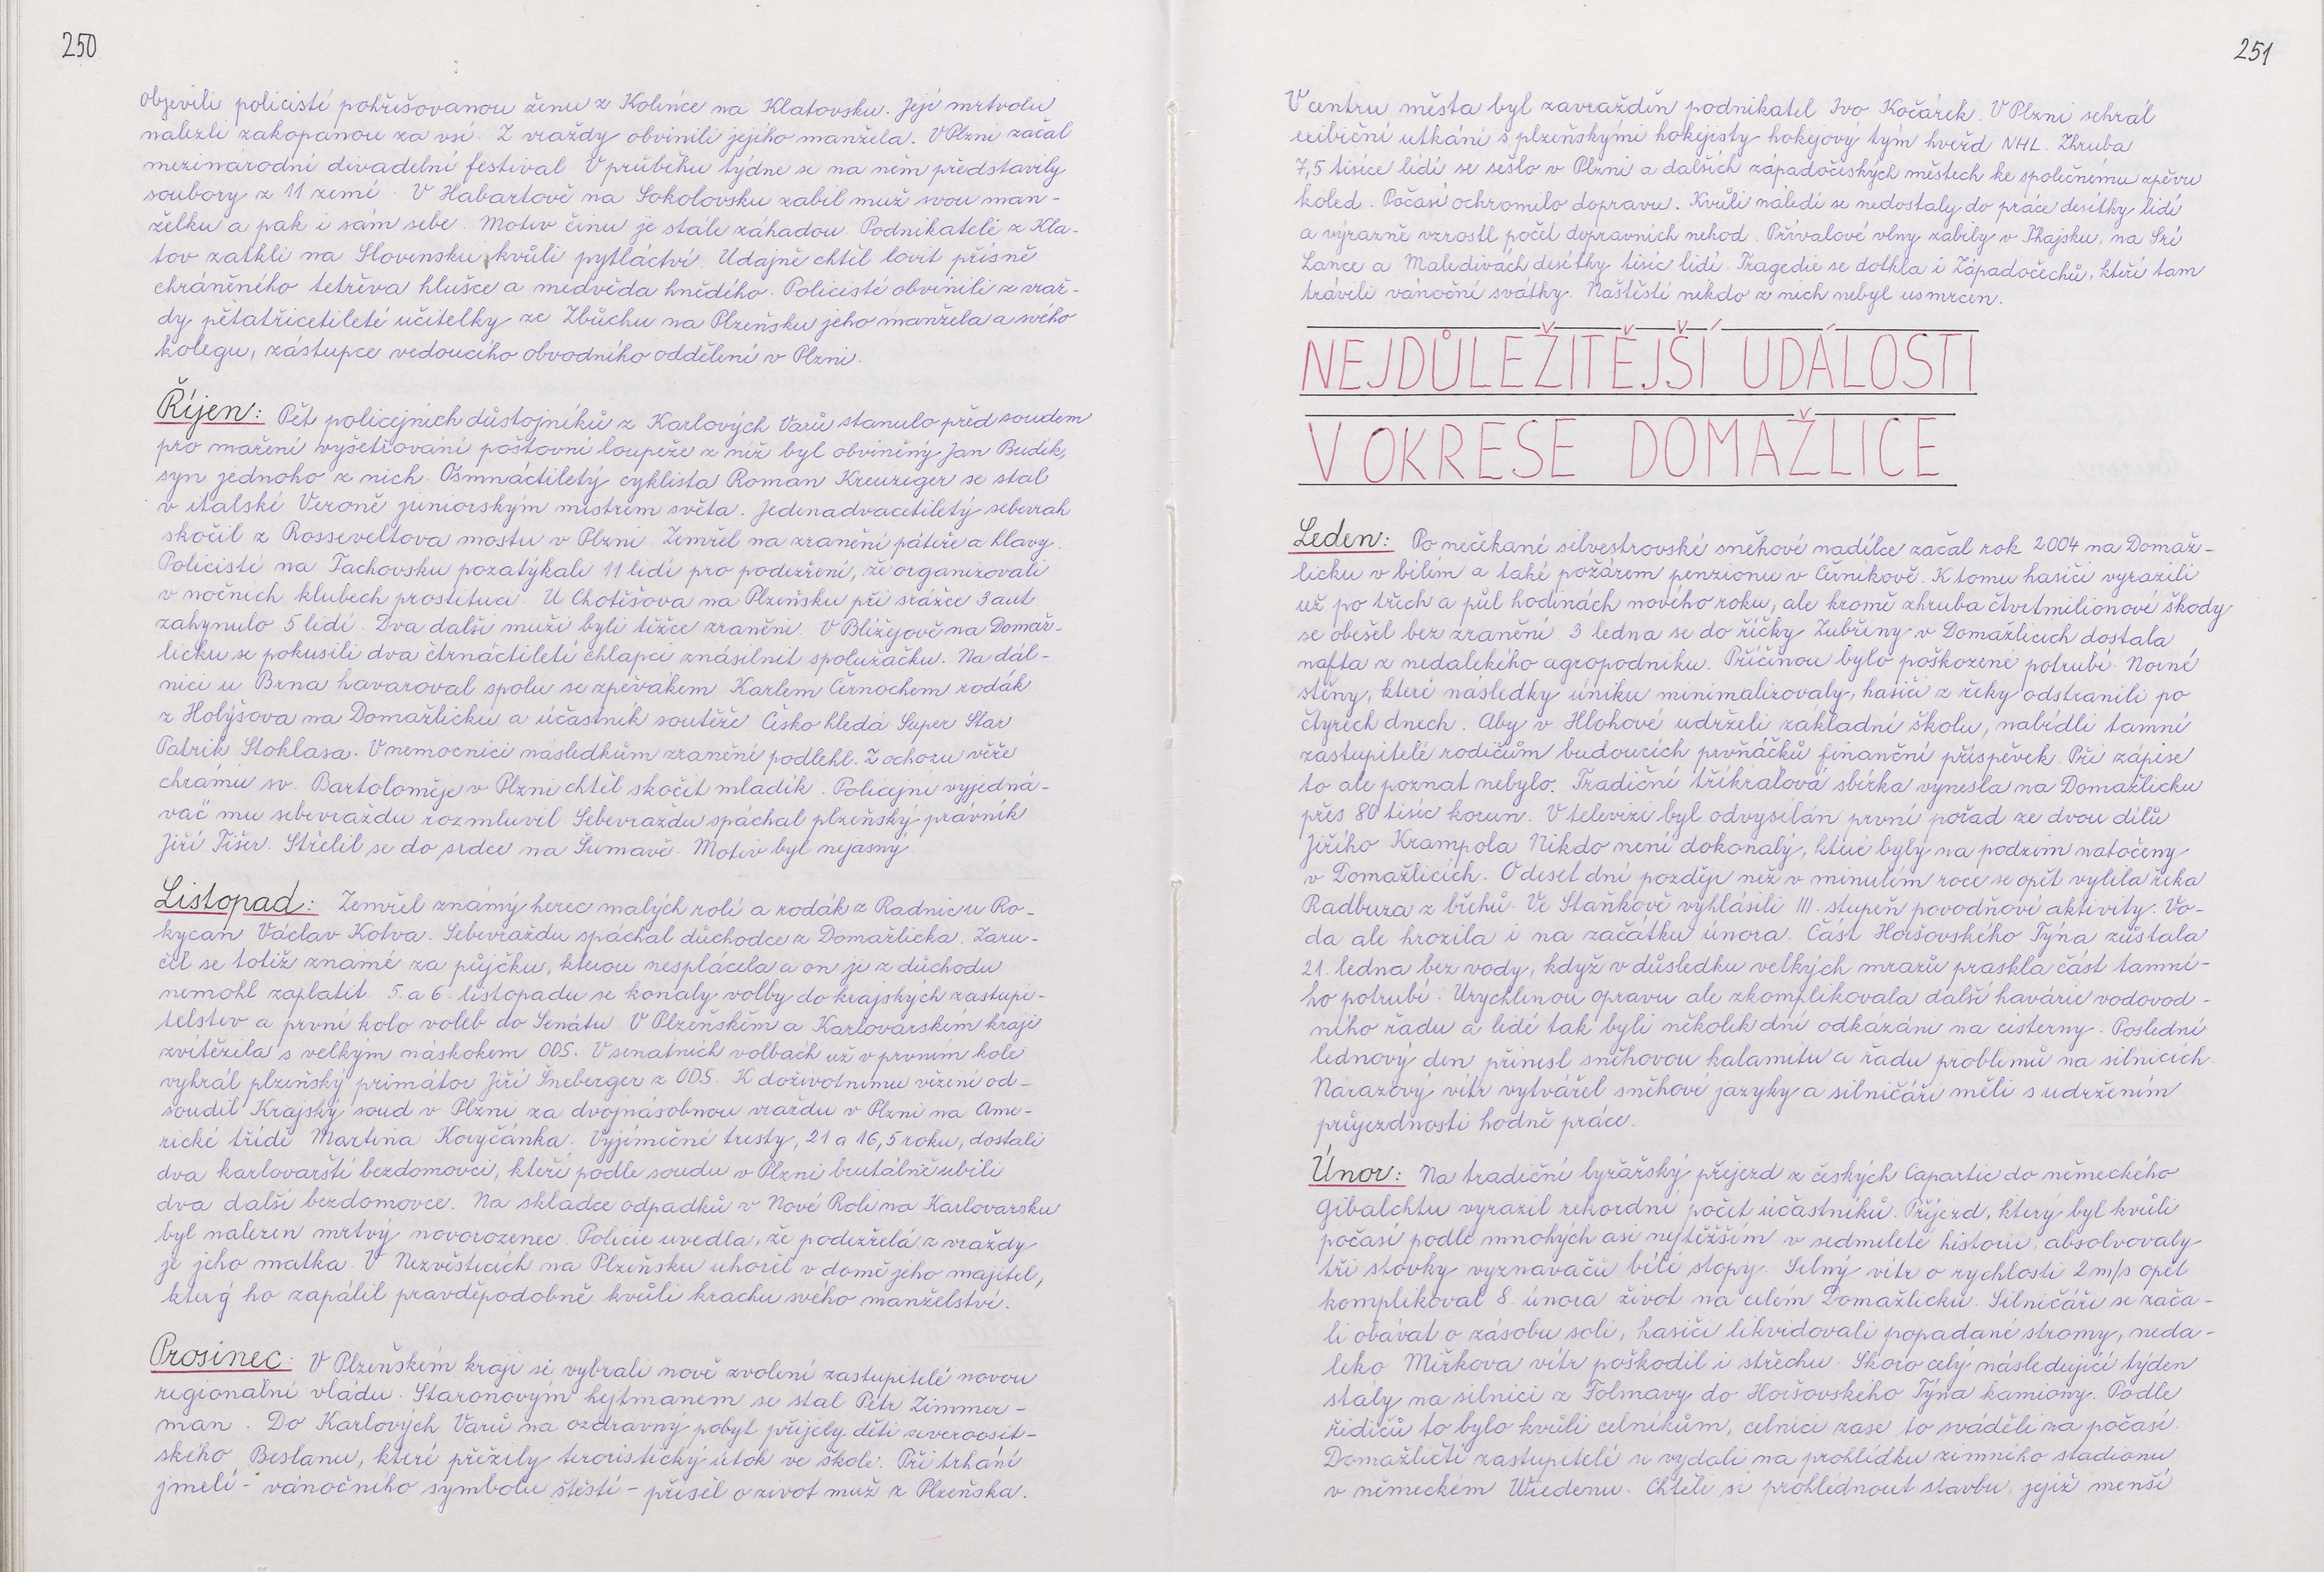 250
objevili policisté pohřešovanou ženu z Kolince na Klatovsku. Její mrtvolu
nalezli zakopanou za vsí. Z vraždy obvinili jejího manžela. V Plzni začal
mezinárodní divadelní festival. V průběhu týdne se na něm představily
soubory z 11 zemí. V Habartově na Sokolovsku zabil muž svou man-
želku a pak i sám sebe. Motiv činu je stále záhadou. Podnikatele z Kla-
tov zatkli na Slovensku kvůli pytláctví. Údajně chtěl lovit přísně
chráněného tetřeva hlušce a medvěda hnědého. Policisté obvinili z vraž-
dy pětatřicetileté učitelky ze Zbůchu na Plzeňsku jeho manžela a svého
kolegu, zástupce vedoucího obvodního oddělení v Plzni.
Říjen: Pět policejních důstojníků z Karlových Varů stanulo před soudem
pro maření vyšetřování poštovní loupeže z níž byl obviněný Jan Budík,
syn jednoho z nich. Osmnáctiletý cyklista Roman Kreuziger se stal
v italské Veroně juniorským mistrem světa. Jedenadvacetiletý sebevrah
skočil z Rosseveltova mostu v Plzni. Zemřel na zranění páteře a hlavy.
Policisté na Tachovsku pozatýkali 11 lidí pro podezření, že organizovali
v nočních klubech prostituci. U Chotěšova na Plzeňsku při srážce 3 aut
zahynulo 5 lidí. Dva další muži byli těžce zraněni. V Blížejově na Domaž-
licku se pokusili dva čtrnáctiletí chlapci znásilnit spolužačku. Na dál-
nici u Brna havaroval spolu se zpěvákem Karlem Černochem rodák
z Holýšova na Domažlicku a účastník soutěže Česko hledá Super Star
Patrik Stoklasa. V nemocnici následkům zranění podlehl. Z ochozu věže
chrámu sv. Bartoloměje v Plzni chtěl skočit mladík. Policejní vyjedná-
vač mu sebevraždu rozmluvil. Sebevraždu spáchal plzeňský právník
Jiří Tišer. Střelil se do srdce na Šumavě. Motiv byl nejasný.
Listopad: Zemřel známý herec malých rolí a rodák z Radnic u Ro-
kycan Václav Kotva. Sebevraždu spáchal důchodce z Domažlicka. Zaru-
čil se totiž známé za půjčku, kterou nesplácela a on je z důchodu
nemohl zaplatit. 5. a 6. listopadu se konaly volby do krajských zastupi-
telstev a první kolo voleb do Senátu. V Plzeňském a Karlovarském kraji
zvítězila s velkým náskokem ODS. V senátních volbách už v prvním kole
vyhrál plzeňský primátor Jiří Šneberger z ODS. K doživotnímu vězení od-
soudil Krajský soud v Plzni za dvojnásobnou vraždu v Plzni na Ame-
rické třídě Martina Kovyčánka. Výjimečné tresty, 21 a 16,5 roku, dostali
dva karlovarští bezdomovci, kteří podle soudu v Plzni brutálně ubili
dva další bezdomovce. Na skládce odpadků v Nové Roli na Karlovarsku
byl nalezen mrtvý novorozenec. Policie uvedla, že podezřelá z vraždy
je jeho matka. V Nezvěsticích na Plzeňsku uhořel v domě jeho majitel,
který ho zapálil pravděpodobně kvůli krachu svého manželství.
Prosinec: V Plzeňském kraji si vybrali nově zvolení zastupitelé novou
regionální vládu. Staronovým hejtmanem se stal Petr Zimmer-
man. Do Karlových Varů na ozdravný pobyt přijely děti severoosit-
ského Beslanu, které přežily teroristický útok ve škole. Při trhání
jmelí - vánočního symbolu štěstí - přišel o život muž z Plzeňska.
251
V centru města byl zavražděn podnikatel Ivo Kočárek. V Plzni sehrál
exibiční utkání s plzeňskými hokejisty hokejový tým hvězd NHL. Zhruba
7,5 tisíce lidí se sešlo v Plzni a dalších západočeských městech ke společnému zpěvu
koled. Počasí ochromilo dopravu. Kvůli náledí se nedostaly do práce desítky lidí
a výrazně vzrostl počet dopravních nehod. Přívalové vlny zabily v Thajsku, na Srí
Lance a Maledivách desítky tisíc lidí. Tragedie se dotkla i Západočechů, kteří tam
trávili vánoční svátky. Naštěstí nikdo z nich nebyl usmrcen.
NEJDŮLEŽITĚJŠÍ UDÁLOSTI
V OKRESE DOMAŽLICE
Leden: Po nečekané silvestrovské sněhové nadílce začal rok 2004 na Domaž-
licku v bílém a také požárem penzionu v Černíkově. K tomu hasiči vyrazili
už po třech a půl hodinách nového roku, ale kromě zhruba čtvrtmilionové škody
se obešel bez zranění. 3 ledna se do říčky Zubřiny v Domažlicích dostala
nafta z nedalekého agropodniku. Příčinou bylo poškozené potrubí. Norné
stěny, které následky úniku minimalizovaly, hasiči z řeky odstranili po
čtyrech dnech. Aby v Hlohové udrželi základní školu, nabídli tamní
zastupitelé rodičům budoucích prvňáčků finanční příspěvek. Při zápise
to ale poznat nebylo. Tradiční tříkrálová sbírka vynesla na Domažlicku
přes 80 tisíc korun. V televizi byl odvysílán první pořad ze dvou dílů
Jiřího Krampola Nikdo není dokonalý, které byly na podzim natočeny
v Domažlicích. O deset dní později než v minulém roce se opět vylila řeka
Radbuza z břehů. Ve Staňkově vyhlásili III. stupeň povodňové aktivity. Vo-
da ale hrozila i na začátku února. Část Horšovského Týna zůstala
21. ledna bez vody, když v důsledku velkých mrazů praskla část tamní-
ho potrubí. Urychlenou opravu ale zkomplikovala další havárie vodovod-
ního řadu a lidé tak byli několik dní odkázáni na cisterny. Poslední
lednový den přinesl sněhovou kalamitu a řadu problémů na silnicích.
Nárazový vítr vytvářel sněhové jazyky a silničáři měli s udržením
průjezdnosti hodně práce.
Únor: Na tradiční lyžařský přejezd z českých Capartic do německého
Gibalchtu vyrazil rekordní počet účastníků. Přejezd, který byl kvůli
počasí podle mnohých asi nejtěžším v sedmileté historii, absolvovaly
tři stovky vyznavačů bílé stopy. Silný vítr o rychlosti 2 m/s opět
komplikoval 8. února život na celém Domažlicku. Silničáři se zača-
li obávat o zásobu soli, hasiči likvidovali popadané stromy, neda-
leko Mířkova vítr poškodil i střechu. Skoro celý následující týden
stály na silnici z Folmavy do Horšovského Týna kamiony. Podle
řidičů to bylo kvůli celníkům, celníci zase to sváděli na počasí.
Domažličtí zastupitelé se vydali na prohlídku zimního stadionu
v německém Wiedenu. Chtěli si prohlédnout stavbu, jejíž menší